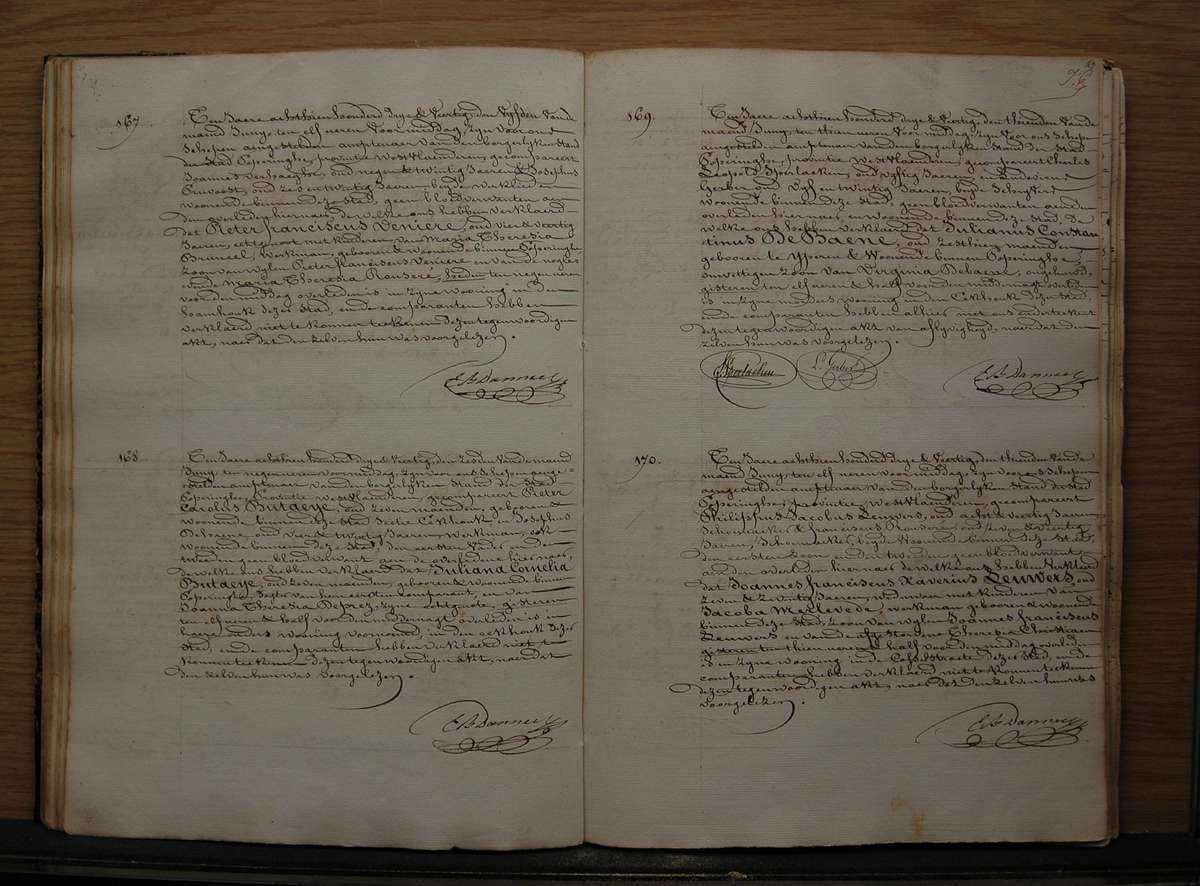 167.
Ten Jaere achthien honderd drye & Veertig, den Vyfden Vande
maend Juny, ten elf uren Voormiddag, zyn voor ons
Schepen aengestelden amptenaer van den borgerlyken stand
der stad Poperinghe, provintie Westvlaenderen, gecompareert
Joannes Verhaeghe, oud negen & twintig Jaeren & Josephus
Pruvoost, oud zes en twintig Jaeren beyde werklieden
woonende binnen deze stad, geen bloedverwanten aen
den overleden hiernaer de welke ons hebben verklaerd
dat Pieter franciscus Veniere, oud vier & veertig
Jaeren, echtgenoot met kinderen van Maria Theresia
Bruneel, werkman, geboren & woonende binnen Poperinghe
zoon van wylen Pieter franciscus Veniere en van de nog lev-
ende Maria Theresia Rouseré, heden ten negen uren
voor den middag overleden is in zyne wooning in den
boomhoek dezer stad, en de comparanten hebben
verklaerd niet te konnen teekenen dezen tegenwoordigen
akt, naer dat den zelven hun was voorgelezen.
168.
Ten Jaere achthien honderd drye & Veertig, den zesden Van de maend
Juny, ten negen uren voormiddag, zyn voor ons Schepen aenge-
stelden amptenaer van den borgerlyken stand der stad
Poperinghe, Provintie Westvlaenderen, gecompareert Pieter
Carolus Butaeye, oud zeven maenden, geboren &
woonende binnen deze stad Sectie Eekhoek en Josephus
oud vier & twintig Jaeren, werkman, ook
woonende binnen deze stad, den eersten Vader en den
tweeden geen bloedverwant aen de overledene hiernaer,
de welke ons hebben verklaerd dat Juliana Cornelia
Butaeye, oud zeven maenden, geboren & woonende binnen
Poperinghe, dogter van hem eersten comparant, en van
Joanna Theresia Deprez, zyne echtgenote, gisteren
ten elf uren & half voor den middernagt overleden is in
haere ouders wooning voornoemd, in den eekhoek dezer
stad, en de comparanten hebben verklaerd niet te
konnen teekenen dezen tegenwoordigen akt, naer dat
den zelven hun was voorgelezen.
169.
Ten Jaere achthien honderd drye & Veertig, den thienden Vande
maend Juny, ten thien uren Voormiddag, zyn Voor ons Schepen
aengestelden amptenaer van den borgerlyken stand der stad
Poperinghe, provintie Westvlaenderen, gecompareert Charles
Leopold oud vyftig Jaeren, en Ludovicus
Gerber oud Vyf en twintig Jaeren, beyde
woonende binnen deze stad, geen bloedverwanten aen den
overleden hiernaer, en woonende binnen deze stad, de
welke ons hebben verklaerd dat Julianus Constan-
tinus De Baene, oud zesthien maenden,
geboren te Yperen & Woonende binnen Poperinghe,
onwettigen zoon van Virginia Debaene, ongehuwd,
gisteren ten elf uren & half voor den middernagt overleden
is in zyne moeders wooning in den Eekhoek dezer stad,
en de comparanten hebben alhier met ons onderteekent
dezen tegenwoordigen akt van aflyvigheyd, naer dat den
zelven hun was voorgelezen.
170.
Ten Jaere achthien honderd drye & Veertig, den thienden Vande
maend Juny, ten elf uren voormiddag, zyn voor ons Schepen
aengestelden amptenaer van den borgerlyken stand der stad
Poperinghe, provintie Westvlaenderen gecompareert
Philippus Jacobus Leuwers, oud acht & veertig Jaeren
Schoenmaker & franciscus Rouseré, oud zeven & veertig
Jaeren, Schoenmaker, beyde Woonende binnen deze stad,
den eersten zoon, en den tweeden geen bloedverwant
aen den overleden hiernaer de welke ons hebben Verklaerd
dat Joannes franciscus Xaverius Leuwers, oud
zeven & zeventig Jaeren, weduwaer met kinderen Van
Jacoba Merlevede, werkman geboren & woonende
binnen deze stad, zoon van wylen Joannes franciscus
Leuwers en van de afgestorvene Theresia Christiaen
gisteren ten thien uren & half voor den middag overleden
is in zyne wooning in de Casselstraete dezer stad, en de
comparanten hebben verklaerd niet te konnen teekenen
dezen tegenwoordigen akt, naer dat den zelven hun was
voorgelezen.